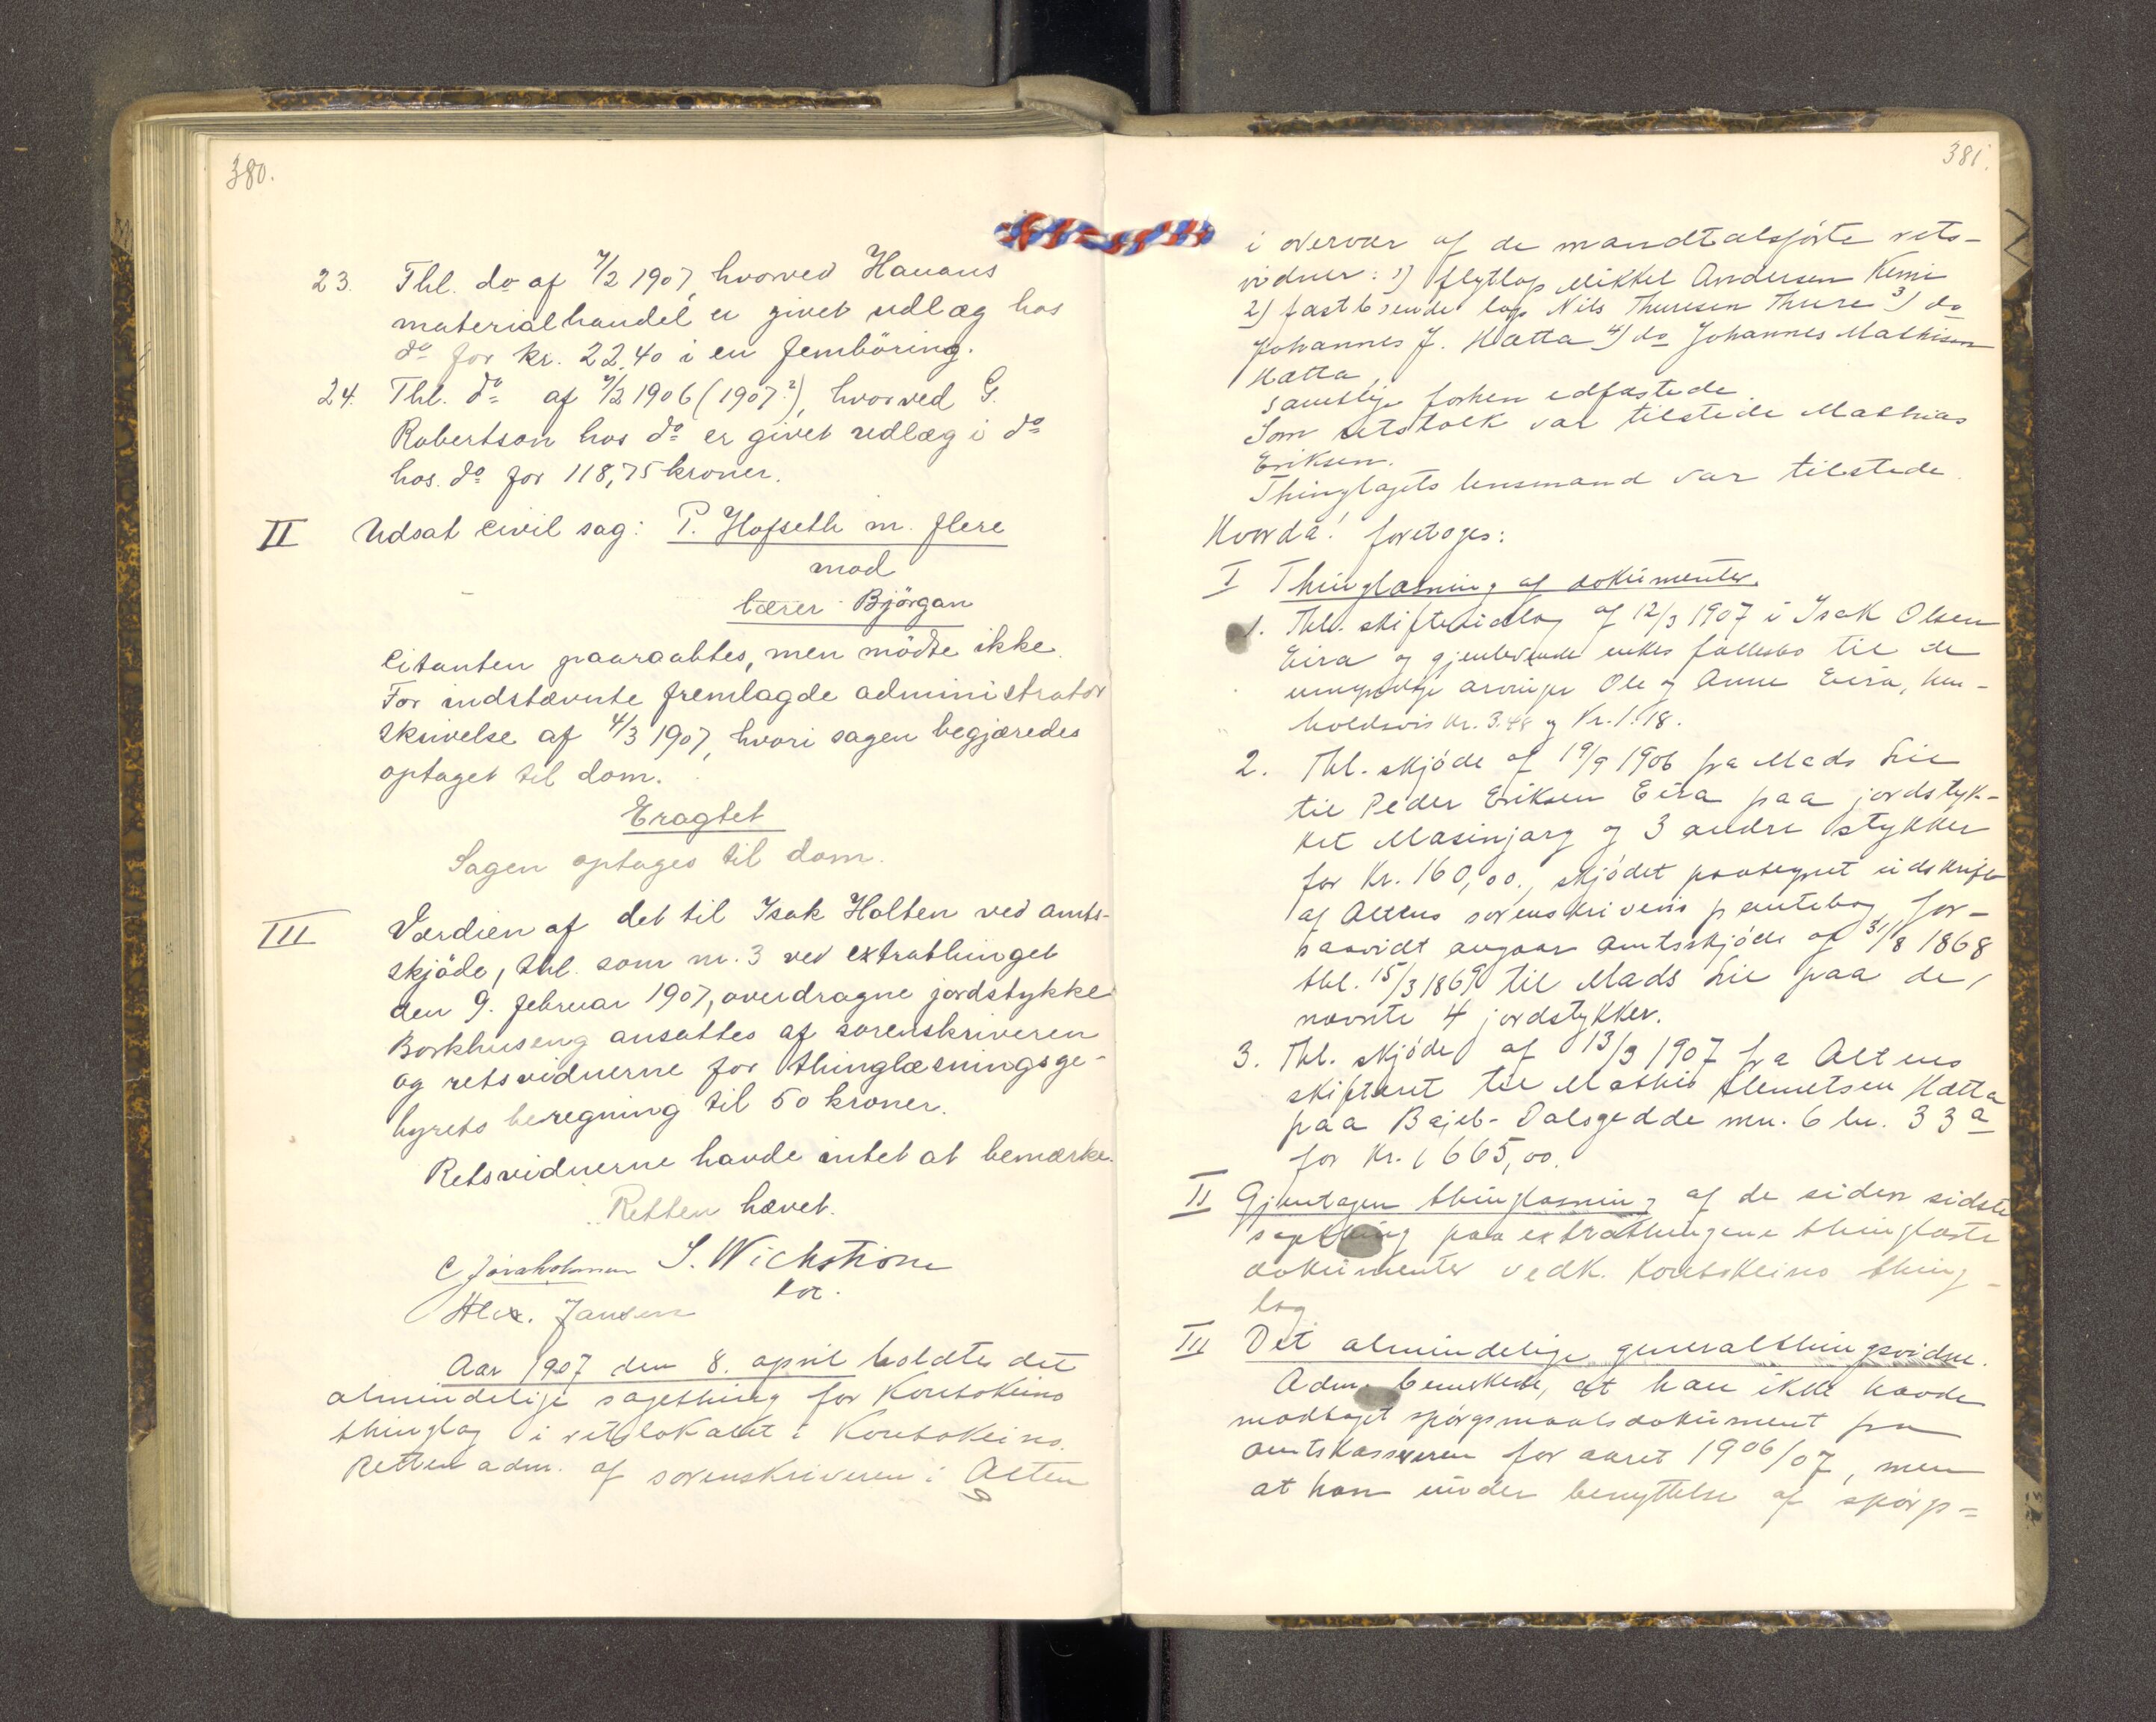 380.
23. Thl. do af 7/2 1907, hvorved Hauans
materialhandel er givet udlæg hos
do for kr. 22.40 i en fembøring.
24. Thl. do af 7/2 1906 (1907?), hvorved G.
Robertson hos do er givet udlæg i do
hos. do for 118,75 kroner.
II Udsat civil sag: P. Hofseth m. flere
mod
lærer Bjørgan
Citanten paaraabtes, men mødte ikke.
For indstævnte fremlagde administrator
skrivelse af 4/3 1907, hvori sagen begjæredes
optaget til dom.
Eragtet
Sagen optages til dom.
III Værdien af det til Isak Holten ved amts-
skjøde, thl. som nr. 3 ved extrathinget
den 9. februar 1907, overdragne jordstykke
Borkhuseng ansattes af sorenskriveren
og retsvidnerne for thinglæsningsge-
byrets beregning til 50 kroner.
Retsvidnerne havde intet at bemærke.
Retten hævet.
S. Wichstrøm
kst.
Alex. Jansen
Aar 1907 den 8. april holdtes det
almindelige sagething for Koutokeino
thinglag i retslokalet i Koutokeino.
Retten adm. af sorenskriveren i Alten
381.
i overvær af de mandtalsførte rets-
vidner: 1) flytlap Mikkel Andersen Kemi
2) fastboende lap Nils Thuresen Thure 3) do
Johannes J. Hætta 4) do Johannes Mathisen
Hætta,
samtlige forhen edfæstede.
Som retstolk var tilstede Mathias
Eriksen.
Thinglagets lensmand var tilstede.
Hvorda! foretoges:
I Thinglæsning af dokumenter.
1. Thl. skifteudlæg af 12/3 1907 i Isak Olsen
Eira og gjenlevende enkes fællesbo til de
umyndige arvinger Ole og Anne Eira, hen-
holdsvis kr. 3.48 og kr. 1.18.
2. Thl. skjøde af 19/9 1906 fra Mads Lie
til Peder Eriksen Eira paa jordstyk-
ket Masinjarg og 3 andre stykker
for kr. 160,00., skjødet paategnet udskrift
af Altens sorenskriveris pantebog for-
saavidt angaar amtsskjøde af 31/8 1868
thl. 15/3 1869 til Mads Lie paa de
nævnte 4 jordstykker.
3. Thl. skjøde af 13/3 1907 fra Altens
skifteret til Mathis Klemetsen Hætta
paa Bajeb-Dalsgedde mn. 6 ln. 33 a
for kr. 1665,00.
II Gjentagen thinglæsning af de siden sidste
sagething paa extrathingene thinglæste
dokumenter vedk. Koutokeino thing-
lag
III Det almindelige generalthingsvidne.
Adm. bemerkede, at han ikke havde
modtaget spørgsmaalsdokument fra
amtskassereren for aaret 1906/07, men
at han under benyttelse af spørgs-